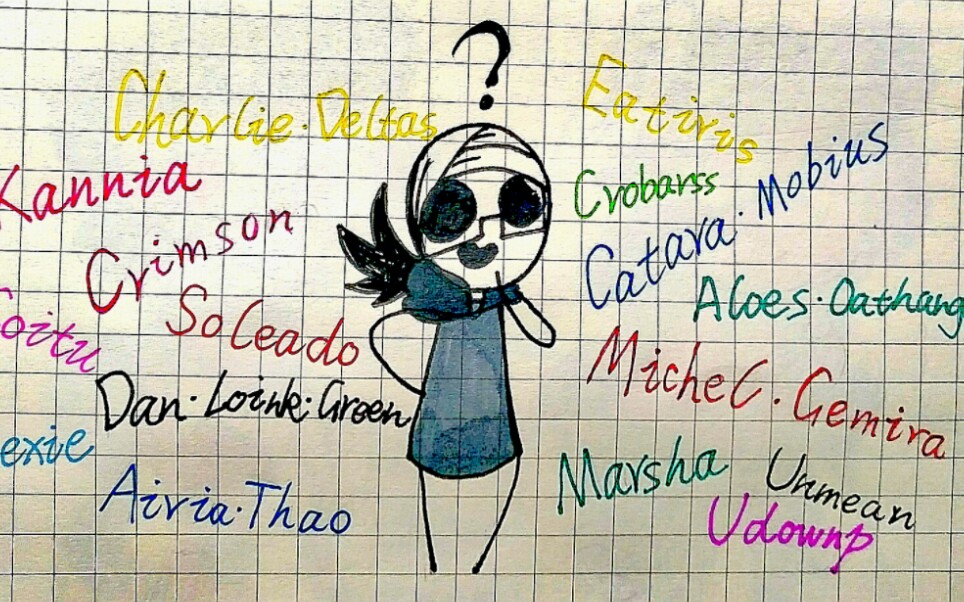 ?
Charlie·Deltas
Eatiris
Kannia
Crobarss
Crimson
Catara·Mobius
Soleado
Aloes·Oathang
oitu
Michel·Gemira
Dan·Loink·Green
exie
Marsha
Unmean
Airia·Thao
Udownp